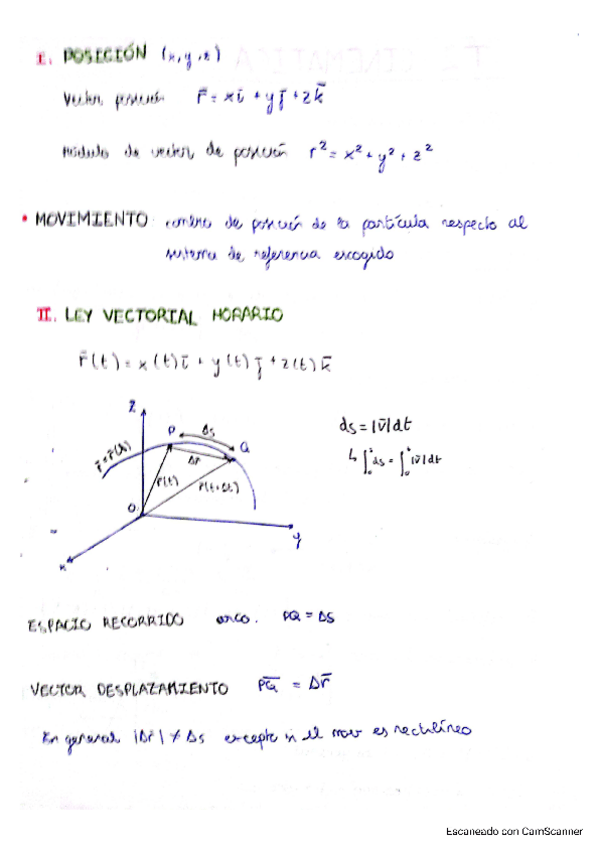 I. POSICIÓN (x,y,z)
Vector posición r̄ = xī + yj̄ + zk̄
Módulo de vector de posición r² = x² + y² + z²
• MOVIMIENTO cambio de posición de la partícula respecto al
sistema de referencia escogido
II. LEY VECTORIAL HORARIO
r̄(t) = x(t)ī + y(t)j̄ + z(t)k̄
z
P Δs
Q
r̄ = r̄(t)
Δr̄
r̄(t)
r̄(t+Δt)
O
y
x
ds = |v̄|dt
↳ ∫₀ˢ ds = ∫₀ᵗ |v̄|dt
ESPACIO RECORRIDO arco. PQ = ΔS
VECTOR DESPLAZAMIENTO P̄Q̄ = Δr̄
En general |Δr̄| ≠ Δs excepto si el mov es rectilíneo
Escaneado con CamScanner